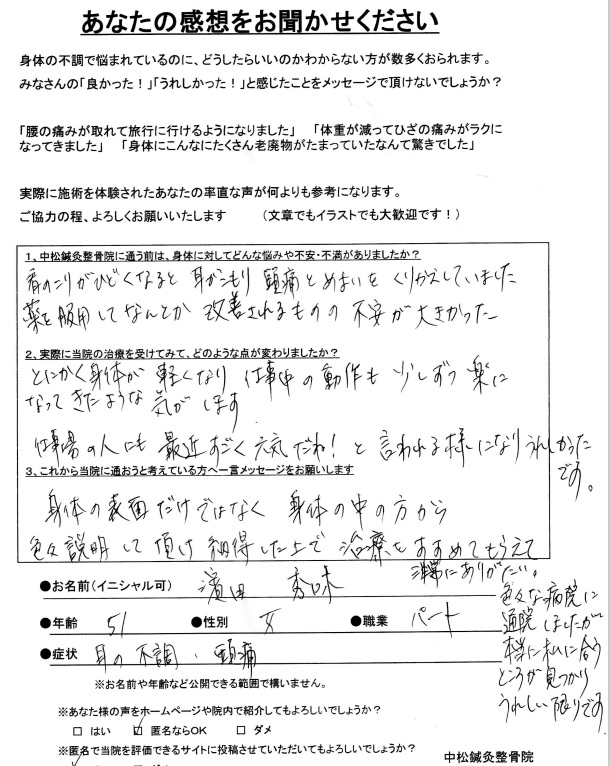 あなたの感想をお聞かせください
身体の不調で悩まれているのに、どうしたらいいのかわからない方が数多くおられます。
みなさんの「良かった！」「うれしかった！」と感じたことをメッセージで頂けないでしょうか？
「腰の痛みが取れて旅行に行けるようになりました」　「体重が減ってひざの痛みがラクに
なってきました」　「身体にこんなにたくさん老廃物がたまっていたなんて驚きでした」
実際に施術を体験されたあなたの率直な声が何よりも参考になります。
ご協力の程、よろしくお願いいたします　　（文章でもイラストでも大歓迎です！）
1、中松鍼灸整骨院に通う前は、身体に対してどんな悩みや不安・不満がありましたか？
肩のこりがひどくなると 耳がこもり 頭痛とめまいを くりかえしていました
薬を服用してなんとか 改善されるものの 不安が大きかった
2、実際に当院の治療を受けてみて、どのような点が変わりましたか？
とにかく身体が 軽くなり 仕事中の動作も 少しずつ 楽に
なってきたような 気がします
仕事場の人にも 最近すごく元気だね！ と 言われる様になり うれしかった
です。
3、これから当院に通おうと考えている方へ一言メッセージをお願いします
身体の表面だけではなく 身体の中の方から
色々説明して頂け 納得した上で 治療をすすめてもらえて
非常にありがたい。
色々な病院に
通院しましたが
本当に私に合う
ところが見つかり
うれしい限りです
●お名前（イニシャル可）　濱田
●年齢　51　●性別　女　●職業　パート
●症状　耳の不調、頭痛
※お名前や年齢など公開できる範囲で構いません。
※あなた様の声をホームページや院内で紹介してもよろしいでしょうか？
□ はい　☑ 匿名ならOK　□ ダメ
※匿名で当院を評価できるサイトに投稿させていただいてもよろしいでしょうか？
中松鍼灸整骨院